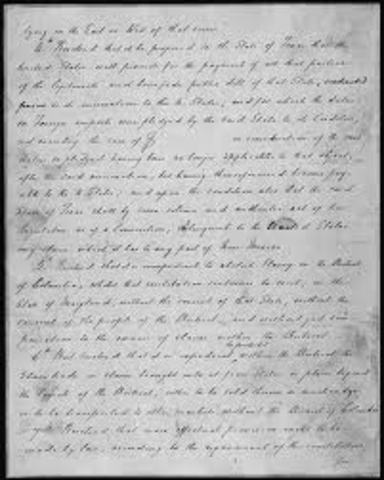 lying on the East or West of that river.
4th Resolved that it be proposed to the State of Texas that the
United States will provide for the payment of all that portion
of the legitimate and bona fide public debt of that State, contracted
prior to its annexation to the U. States, and for which the duties
on foreign imports were pledged by the said State to its Creditors,
not exceeding the sum of $ in consideration of the said
duties so pledged having been no longer applicable to that object,
after the said annexation, but having thenceforward become pay-
able to the U States; and upon the condition also that the said
State of Texas shall by some solemn and authentic act of her
Legislature or of a Convention, relinquish to the United States
any claim which it has to any part of New Mexico.
5th Resolved that it is inexpedient to abolish Slavery in the District
of Columbia, whilst that institution continues to exist in the
State of Maryland, without the consent of that State, without the
consent of the people of the District, and without just com-
pensation to the owners of slaves within the District.
6th But Resolved that it is expedient to prohibit within the District the
Slave trade, in slaves brought into it from States or places beyond
the limits of the District, either to be sold therein as merchandize,
or to be transported to other markets without the District of Columbia
Resolved that more effectual provision ought to be
made by law, according to the requirement of the constitution,